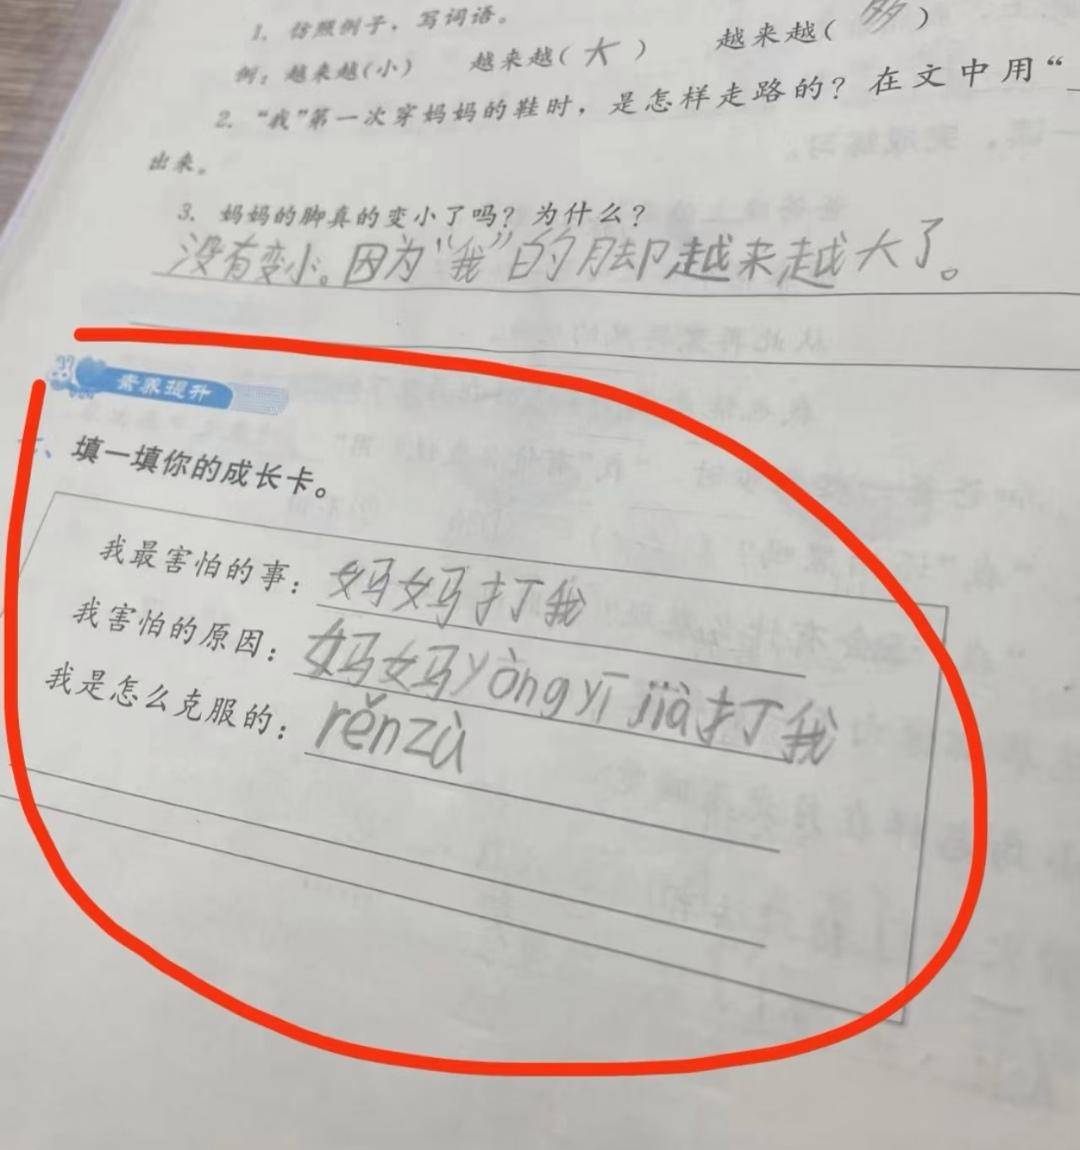 1. 仿照例子，写词语。
例：越来越(小) 越来越(大) 越来越(多)
2. “我”第一次穿妈妈的鞋时，是怎样走路的？在文中用“
出来。
3. 妈妈的脚真的变小了吗？为什么？
没有变小。因为“我”的脚越来越大了。
素养提升
、填一填你的成长卡。
我最害怕的事：妈妈打我
我害怕的原因：妈妈yòng yī jià打我
我是怎么克服的：rěn zù